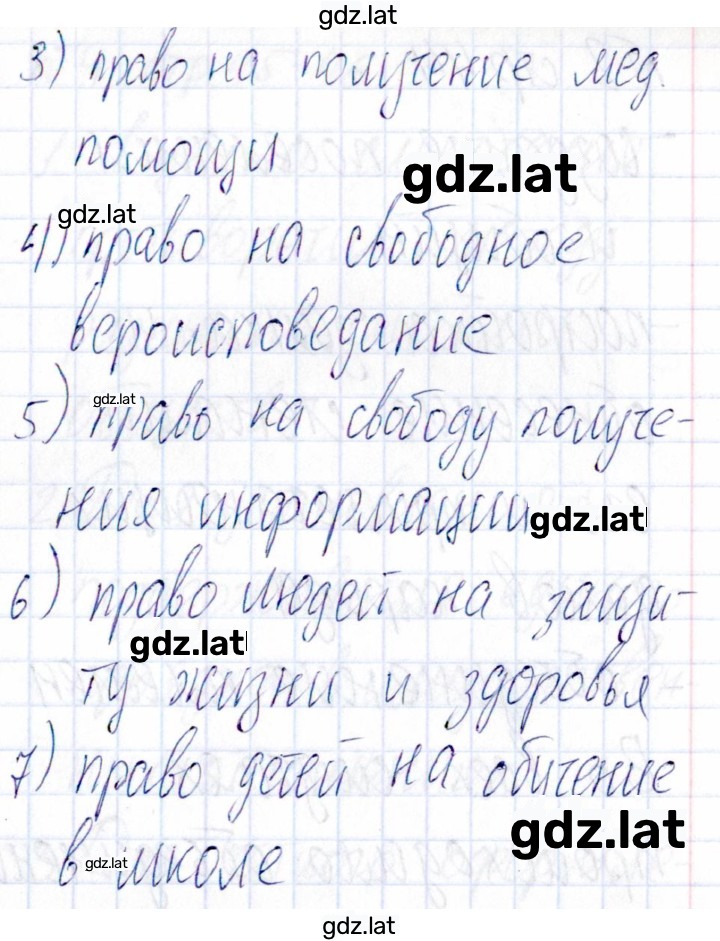 gdz.lat
3) право на получение мед.
помощи
gdz.lat
gdz.lat
4) право на свободное
вероисповедание
gdz.lat
5) право на свободу получе-
ния информации
gdz.lat
6) право людей на защи-
gdz.lat
ту жизни и здоровья
7) право детей на обичение
gdz.lat
в школе
gdz.lat
gdz.lat